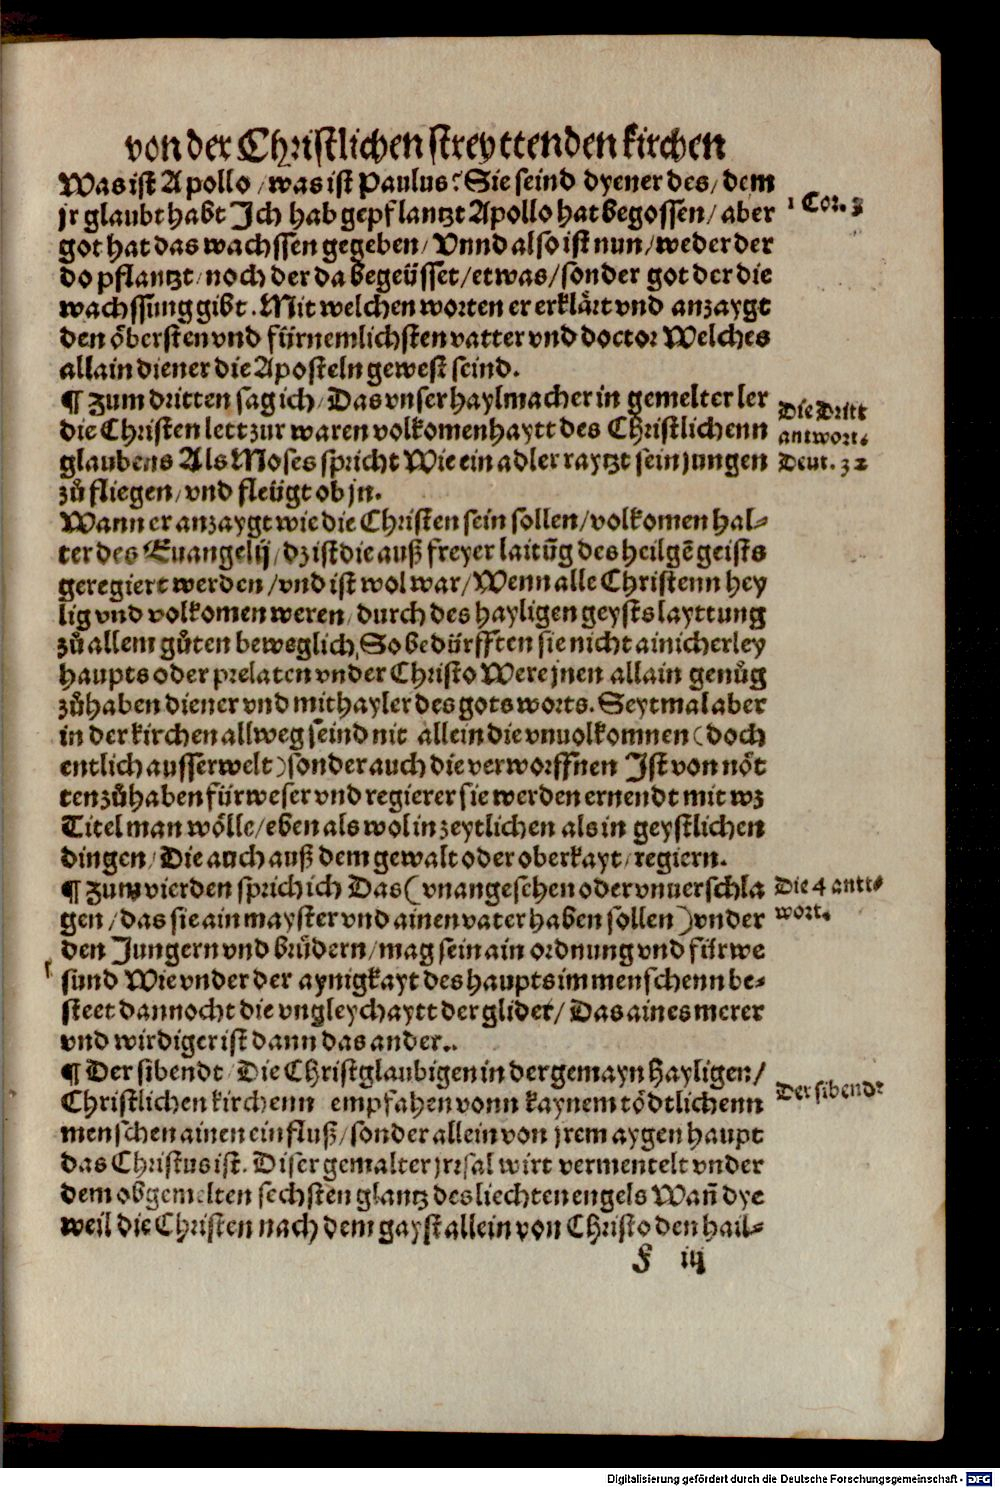 von der Christlichen streyttenden kirchen
Was ist Apollo / was ist Paulus? Sie seind dyener des / dem
jr glaubt habt Ich hab gepflantzt Apollo hat begossen / aber
1 Cor. 3
got hat das wachssen gegeben / Vnnd also ist nun / weder der
do pflantzt / noch der da begeüsset / etwas / sonder got der die
wachssung gibt. Mit welchen worten er erklärt vnd anzaygt
den öbersten vnd fürnemlichsten vatter vnd doctor Welches
allain diener die Aposteln gewest seind.
¶ Zum dritten sag ich / Das vnser haylmacher in gemelter ler
Die Dritt
die Christen lett zur waren volkomenhaytt des Christlichenn
antwort.
glaubens Als Moses spricht Wie ein adler raytzt sein jungen
Deut. 32
zů fliegen / vnd fleügt ob jn.
Wann er anzaygt wie die Christen sein sollen / volkomen hal-
ter des Euangelij / dz ist die auß freyer laitūg des heilgē geists
geregiert werden / vnd ist wol war / Wenn alle Christenn hey
lig vnd volkomen weren / durch des hayligen geysts layttung
zů allem gůten beweglich, So bedürfften sie nicht ainicherley
haupts oder prelaten vnder Christo Were jnen allain genůg
zůhaben diener vnd mithayler des gots worts. Seytmal aber
in der kirchen allweg seind nit allein die vnuolkomnen (doch
entlich ausserwelt) sonder auch die verworffnen Ist von nöt
ten zůhaben fürweser vnd regierer sie werden ernendt mit wz
Titel man wölle / eben als wol in zeytlichen als in geystlichen
dingen / Die auch auß dem gewalt oder oberkayt / regiern.
¶ Zum vierden sprich ich Das (vnangesehen oder vnuerschla
Die 4 antt-
gen / das sie ain mayster vnd ainen vater haben sollen) vnder
wort.
den Jungern vnd brůdern / mag sein ain ordnung vnd fürwe
sund Wie vnder der aynigkayt des haupts im menschenn be-
steet dannocht die vngleychaytt der glider / Das aines merer
vnd wirdiger ist dann das ander..
¶ Der sibendt / Die Christglaubigen in der gemayn Hayligen /
Christlichen kirchenn empfahen vonn kaynem tödtlichenn
Der sibendt
menschen ainen einfluß / sonder allein von jrem aygen haupt
das Christus ist. Diser gemalter jrrsal wirt vermentelt vnder
dem obgemelten sechsten glantz des liechten engels Wañ dye
weil die Christen nach dem gayst allein von Christo den hail-
F iij
Digitalisierung gefördert durch die Deutsche Forschungsgemeinschaft - DFG